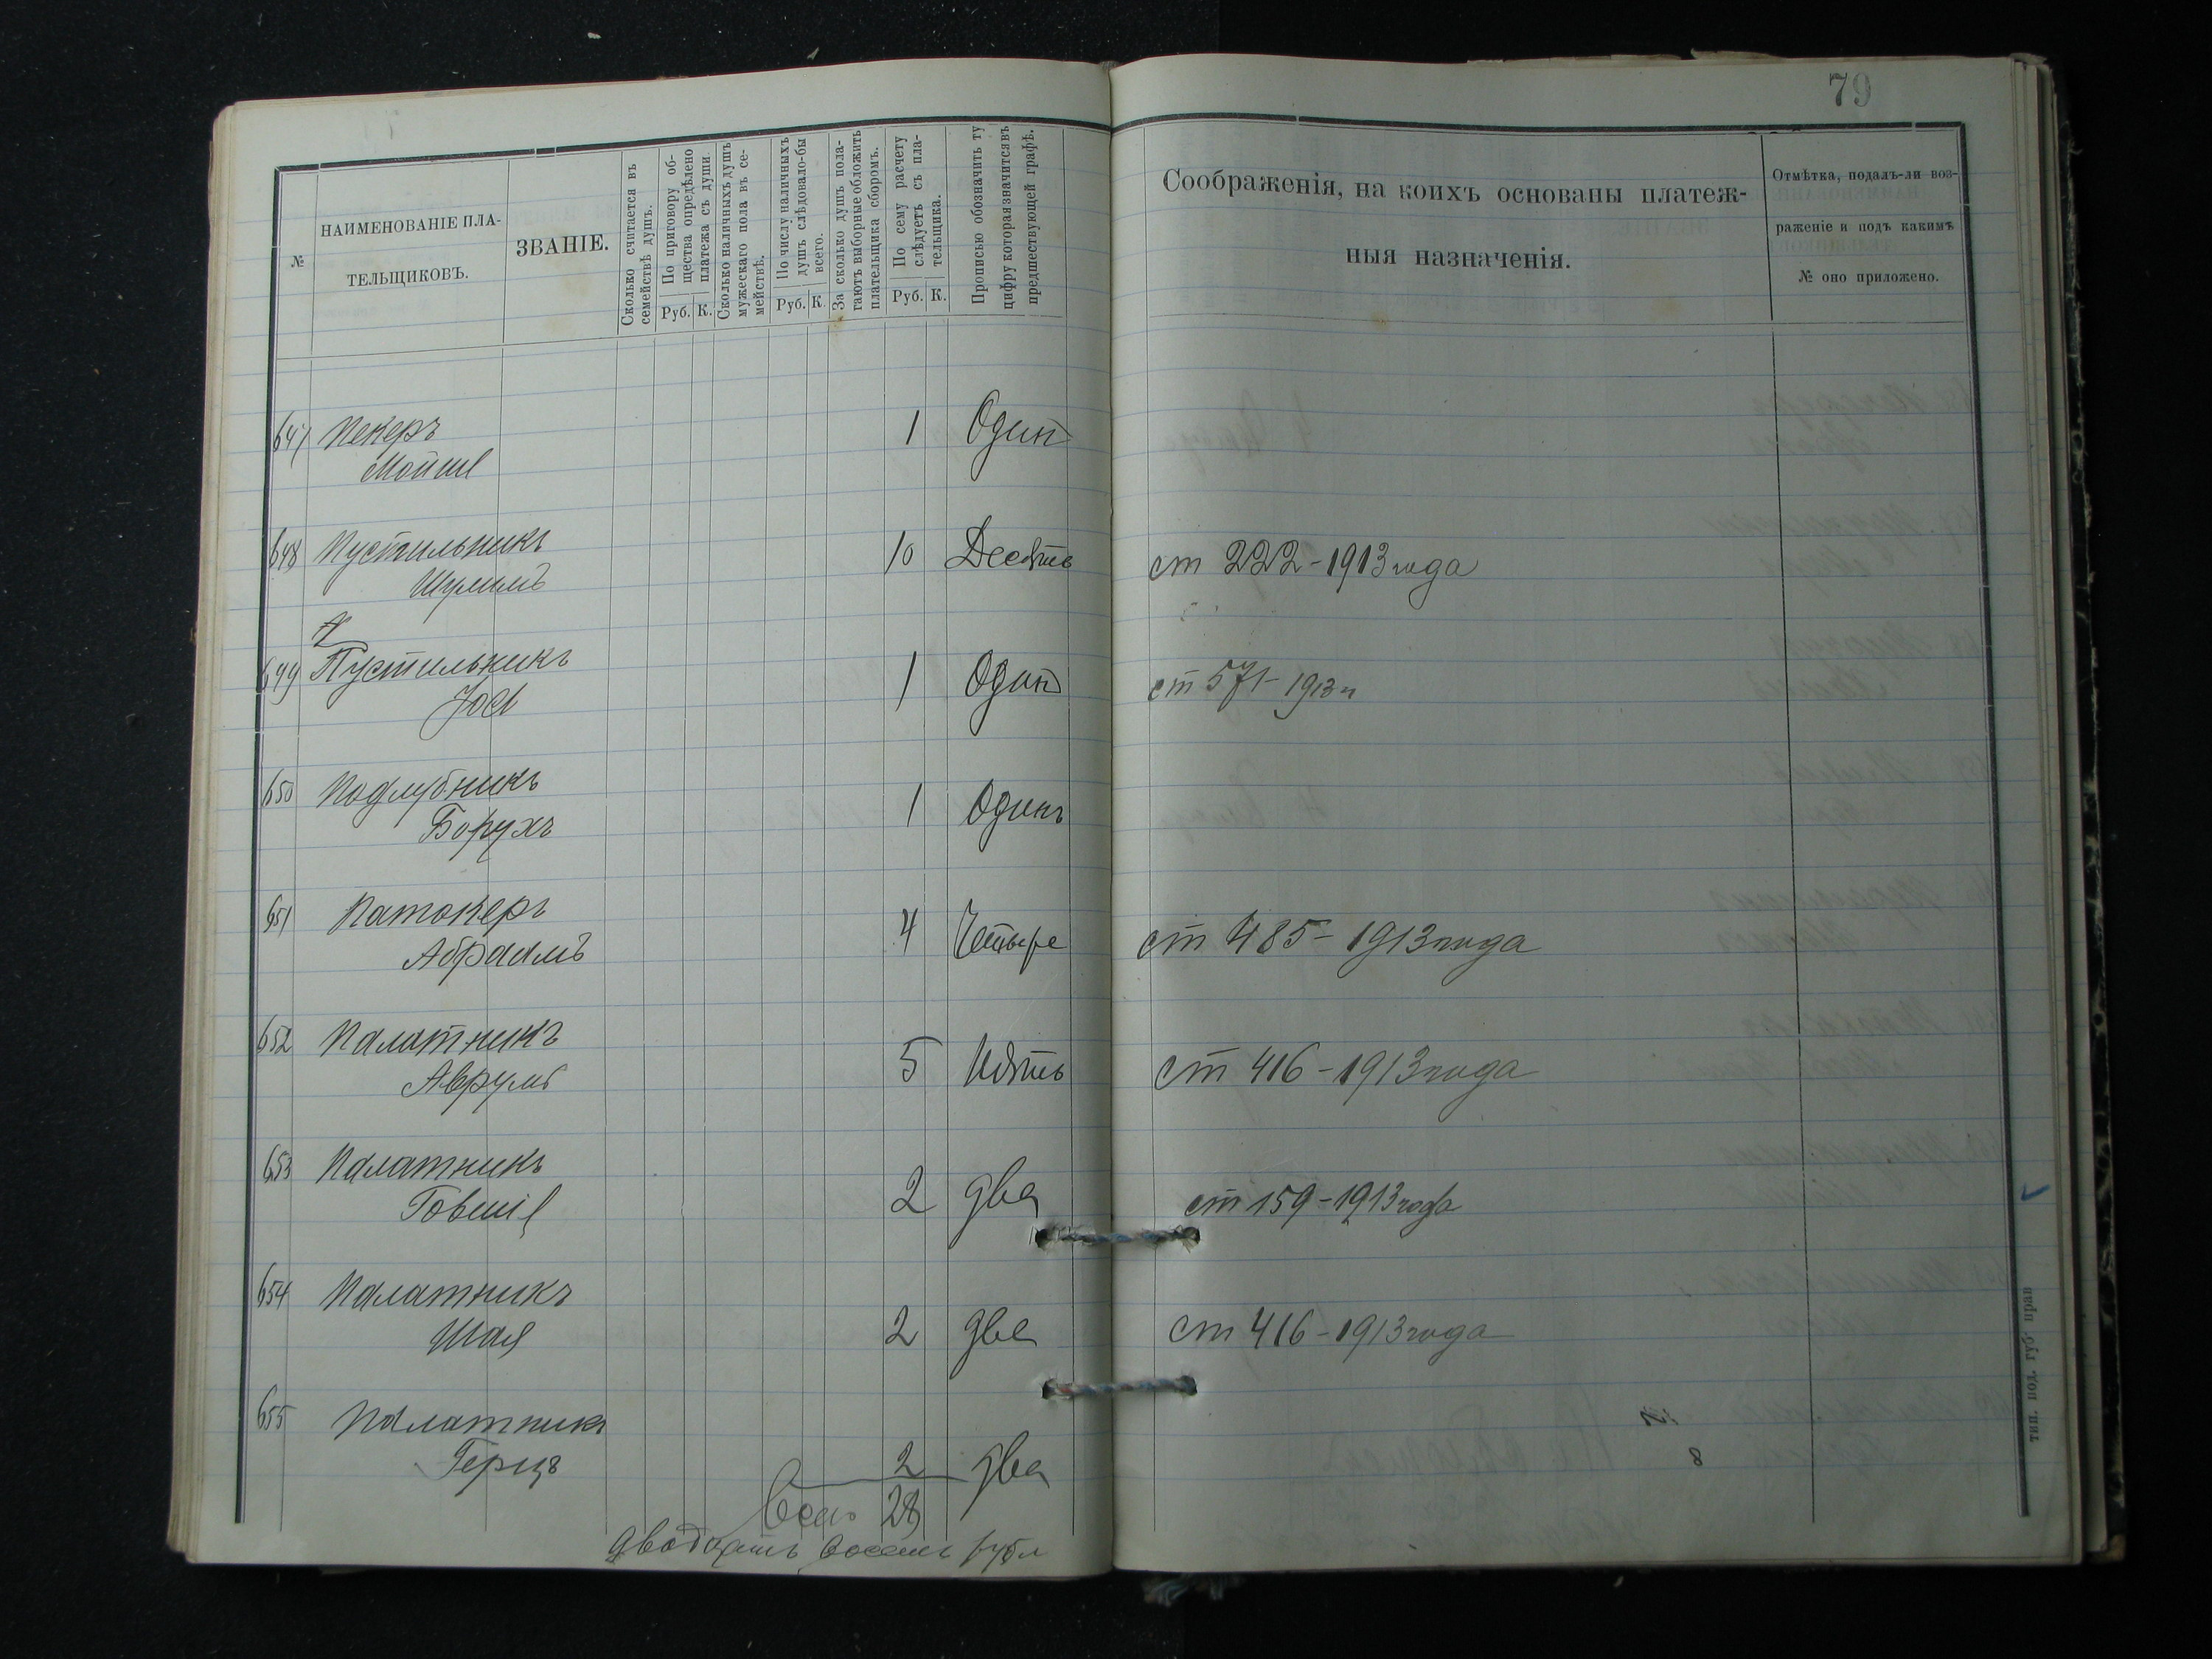 79
№
НАИМЕНОВАНІЕ ПЛА-
ТЕЛЬЩИКОВЪ.
ЗВАНІЕ.
Сколько считается въ
семействѣ душъ.
По приговору об-
щества опредѣлено
платежа съ души.
Руб. К.
Сколько наличныхъ душъ
мужескаго пола въ се-
мействѣ.
По числу наличныхъ
душъ слѣдовало-бы
всего.
Руб. К.
За сколько душъ пола-
гаютъ выборные обложить
плательщика сборомъ.
По сему расчету
слѣдуетъ съ пла-
тельщика.
Руб. К.
Прописью обозначить ту
цифру которая значится въ
предшествующей графѣ.
Соображенія, на коихъ основаны платеж-
ныя назначенія.
Отмѣтка, подалъ-ли воз-
раженіе и подъ какимъ
№ оно приложено.
647 Пекеръ 1 Одинъ
Мойше
648 Пустильникъ 10 Десять ст 222-1913 года
Шулимъ
649 Пустильникъ 1 Одинъ ст 571-1913 г
Йось
650 Подлубникъ 1 Одинъ
Борухъ
651 Патокеръ 4 Четыре ст 485-1913 года
Абрамъ
652 Палатникъ 5 Пять ст 416-1913 года
Аврумъ
653 Палатникъ 2 два ст 159-1913 года
Говшіе
654 Палатникъ 2 два ст 416-1913 года
Шая
655 Палатникъ
Герцъ 2 два
8
Всего 28
двадцать восемь рубл
тип. под. губ. прав